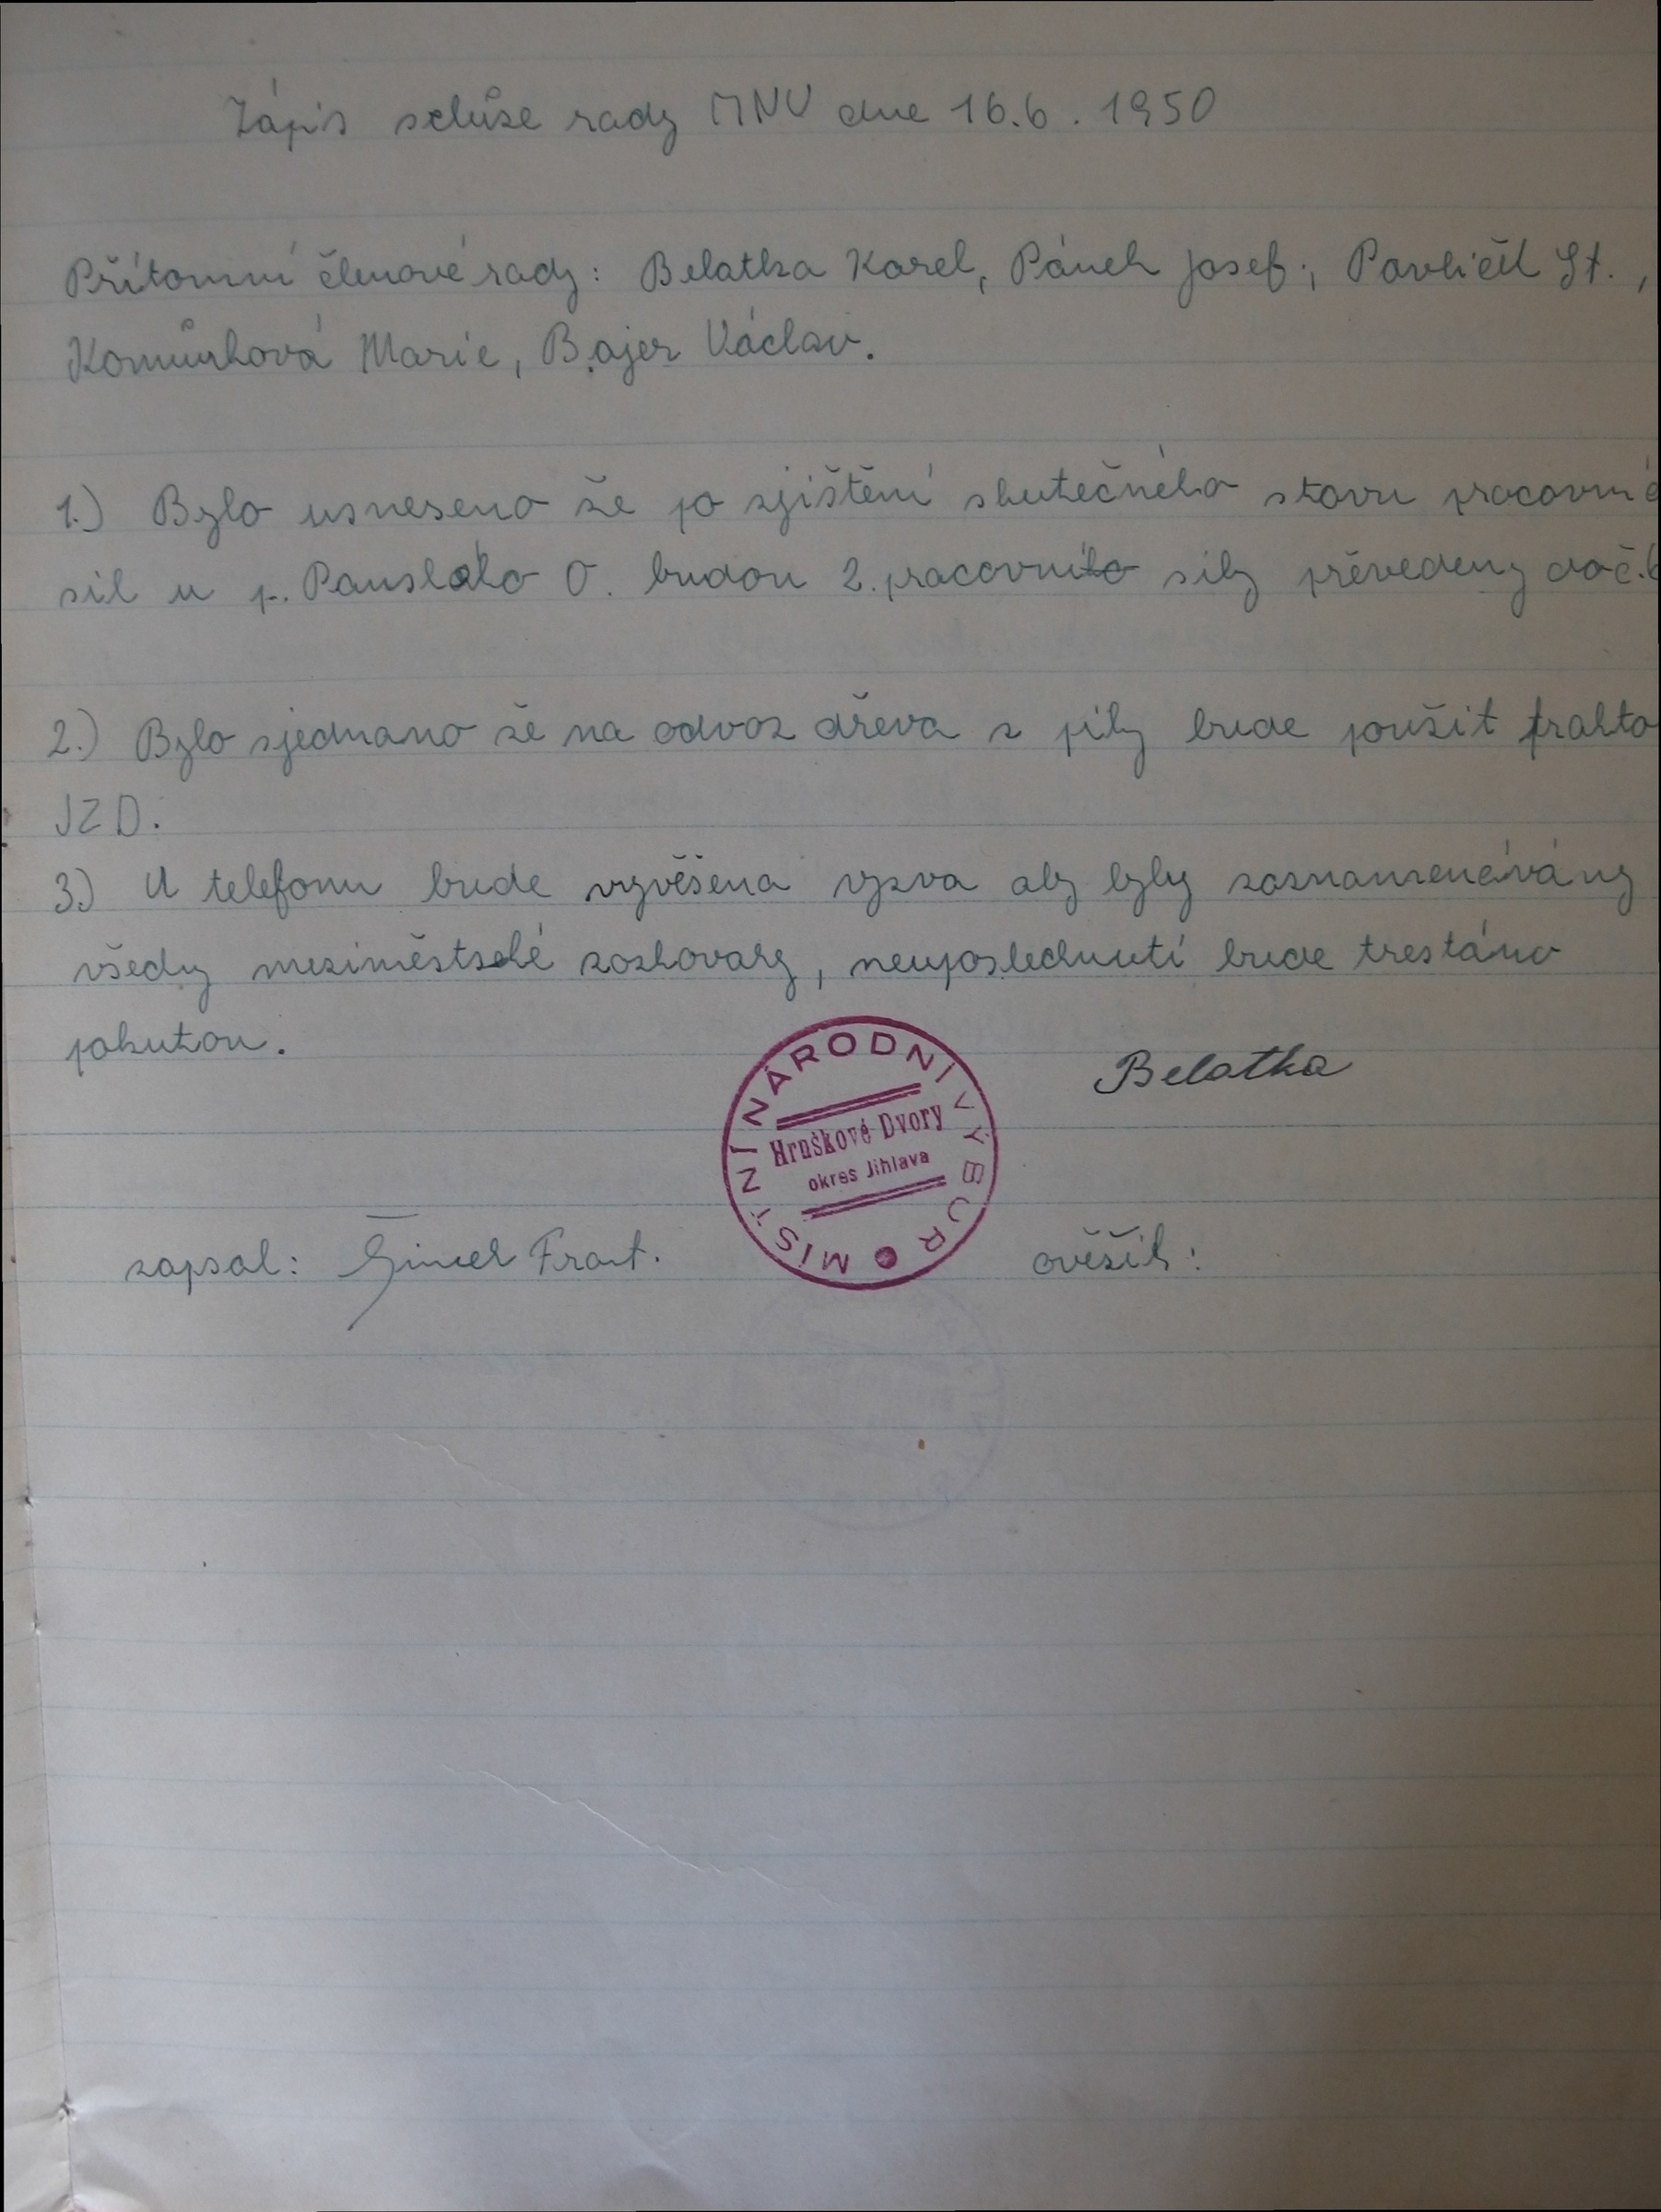 Zápis schůze rady MNV dne 16.6. 1950
Přítomní členové rady: Belatka Karel, Pánek Josef, Pavlíček St.,
Komůrková Marie, Bajer Václav.
1.) Bylo usneseno že po zjištění skutečného stavu pracovné
sil u p. O. budou 2. pracovní síly převedeny do č.
2.) Bylo sjednano že na odvoz dřeva z pily bude použit trakto
JZD.
3.) U telefonu bude vyvěšena vyzva aby byly zaznamenávány
všedny meziměstské rozhovary, neuposlechnutí bude trestáno
pokutou.
Belatka
MÍSTNÍ NÁRODNÍ VÝBOR
Hruškové Dvory
okres Jihlava
zapsal: Frant.
ověřil: